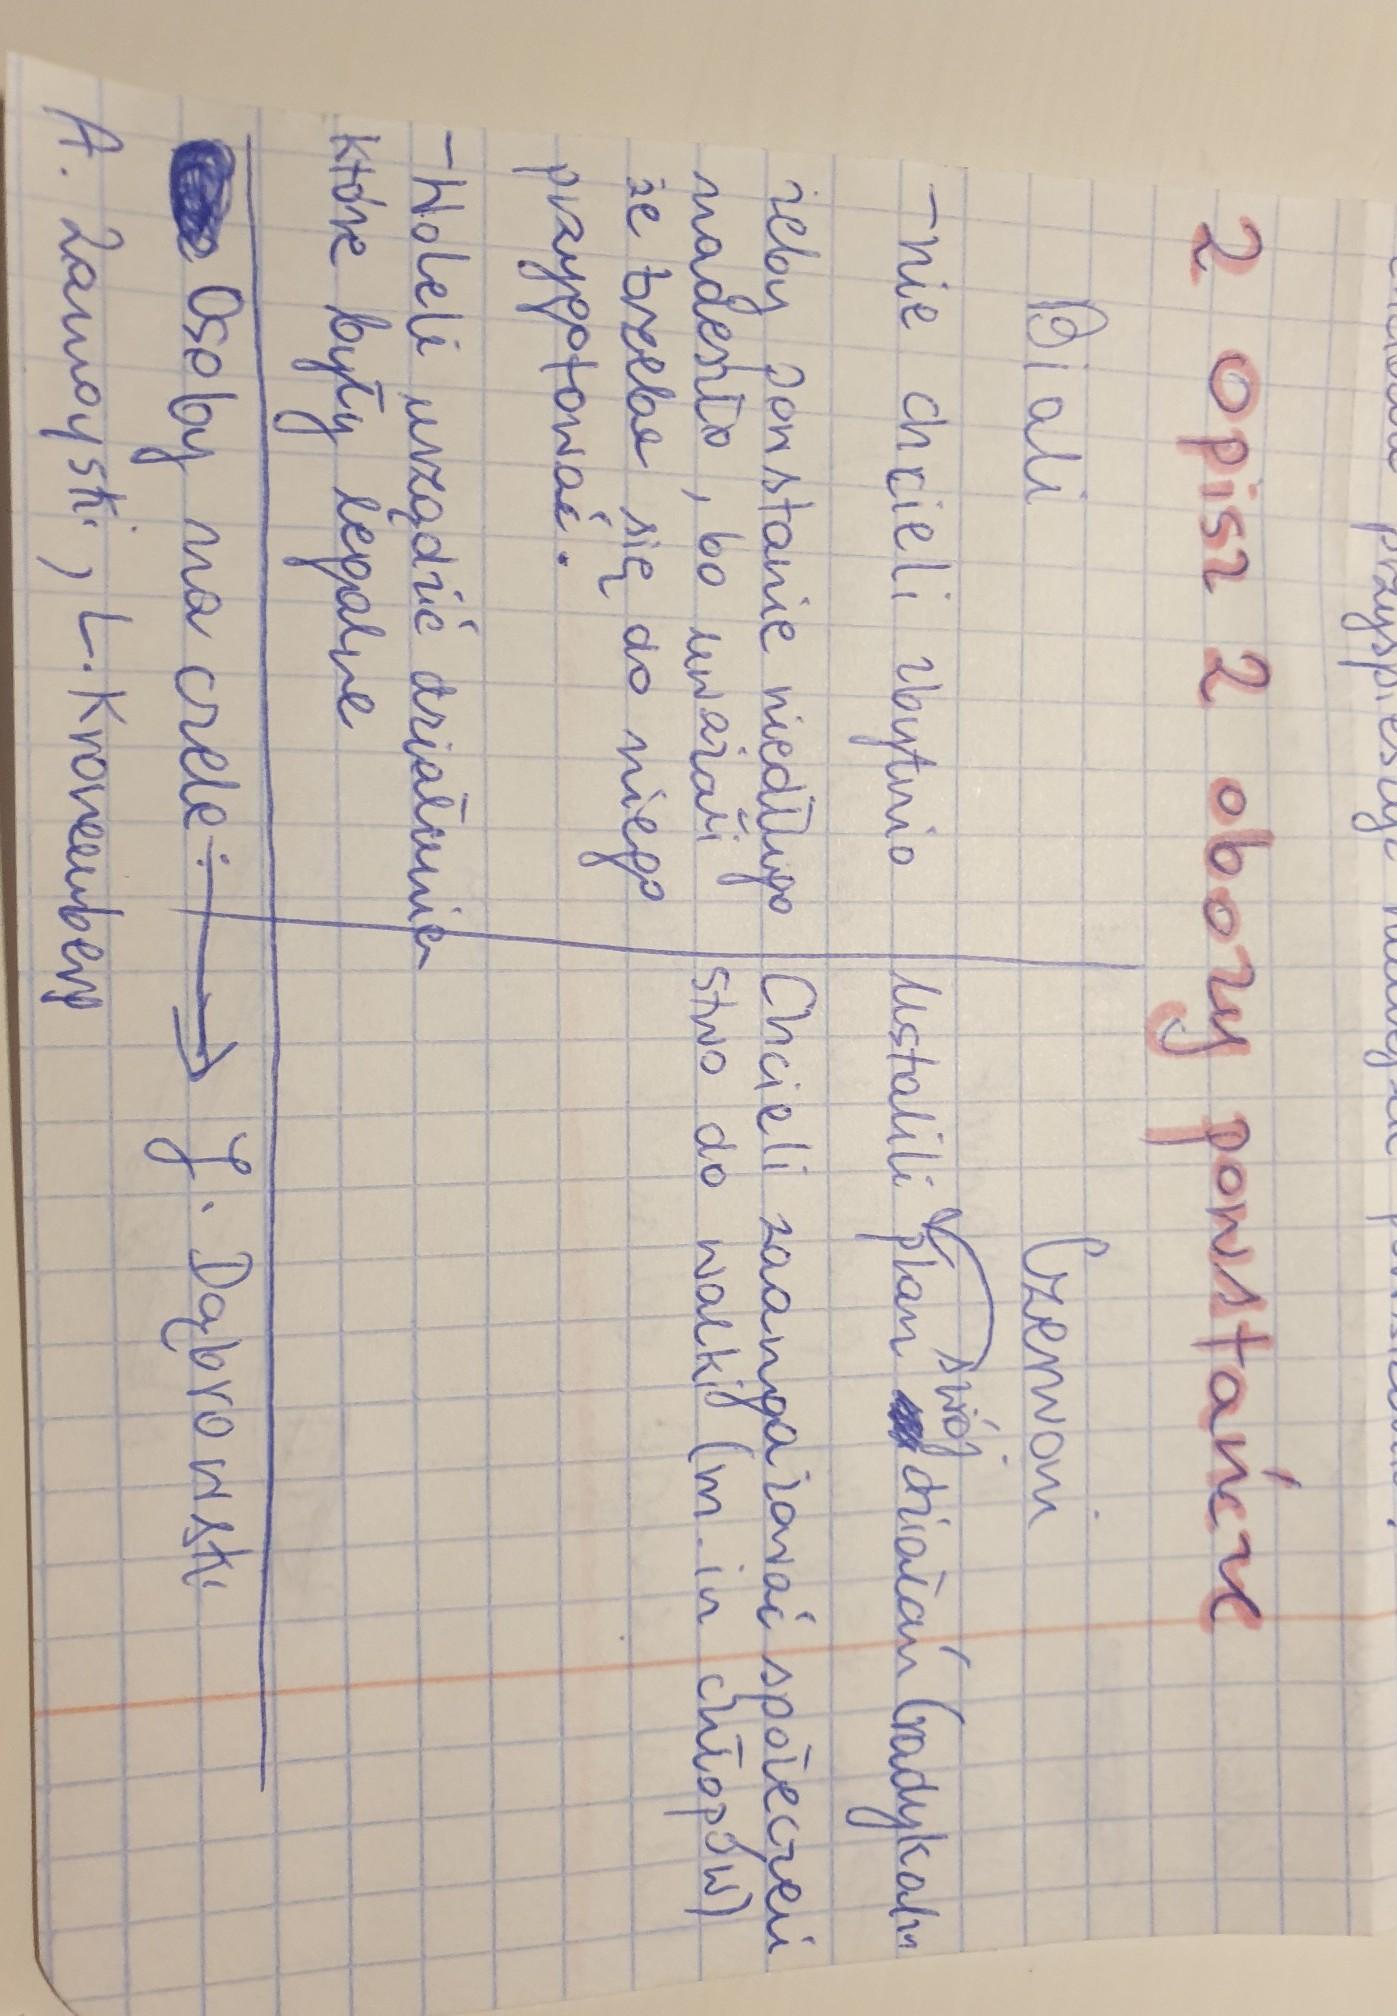 przyspieszyć
2 opisz 2 obozy powstańcze
Biali Czerwoni
-nie chcieli zbytnio Ustalili plan swój działań (radykaln
żeby powstanie niedługo Chcieli zaangażować społeczeń
nadeszło, bo uważali stwo do walki (m.in chłopów)
że trzeba się do niego
przygotować.
-Woleli urządzić działania
które były legalne
Osoby na czele: → J. Dąbrowski
A. Zamoyski, L. Kronenberg